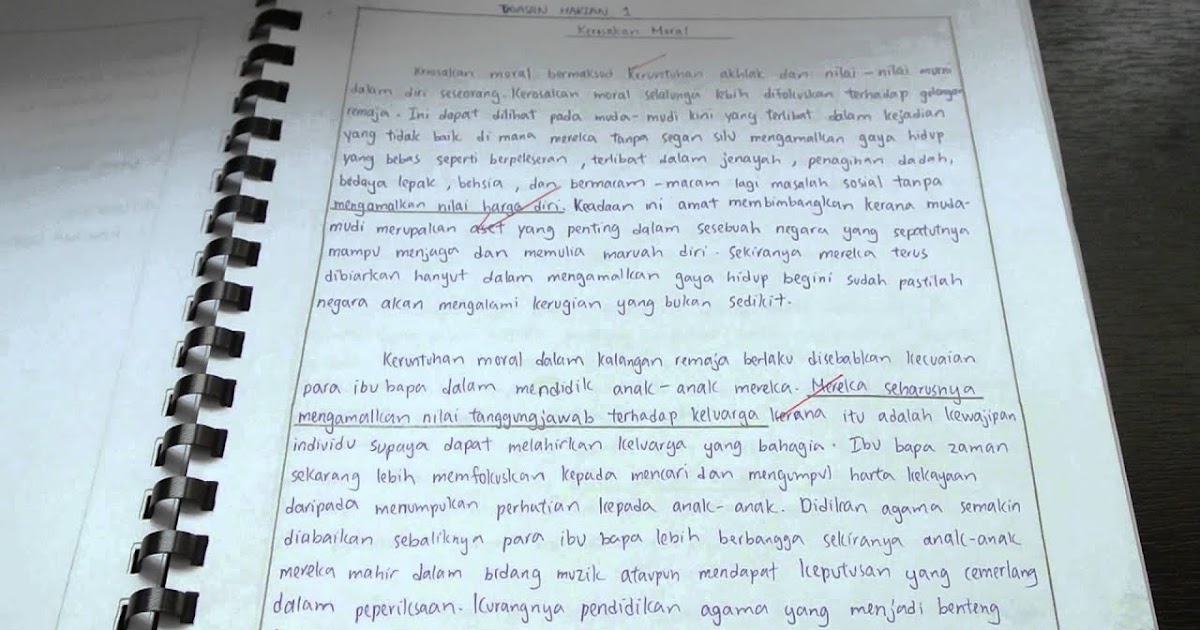 TUGASAN HARIAN 1
Kerosakan Moral
Kerosakan moral bermaksud keruntuhan akhlak dan nilai-nilai murni
dalam diri seseorang. Kerosakan moral selalunya lebih difokuskan terhadap golongan
remaja. Ini dapat dilihat pada muda-mudi kini yang terlibat dalam kejadian
yang tidak baik di mana mereka tanpa segan silu mengamalkan gaya hidup
yang bebas seperti berpeleseran, terlibat dalam jenayah, penagihan dadah,
bedaya lepak, bohsia, dan bermacam-macam lagi masalah sosial tanpa
mengamalkan nilai harga diri. Keadaan ini amat membimbangkan kerana muda-
mudi merupakan aset yang penting dalam sesebuah negara yang sepatutnya
mampu menjaga dan memulia maruah diri. Sekiranya mereka terus
dibiarkan hanyut dalam mengamalkan gaya hidup begini sudah pastilah
negara akan mengalami kerugian yang bukan sedikit.
Keruntuhan moral dalam kalangan remaja berlaku disebabkan kecuaian
para ibu bapa dalam mendidik anak-anak mereka. Mereka seharusnya
mengamalkan nilai tanggungjawab terhadap keluarga kerana itu adalah kewajipan
individu supaya dapat melahirkan keluarga yang bahagia. Ibu bapa zaman
sekarang lebih memfokuskan kepada mencari dan mengumpul harta kekayaan
daripada menumpukan perhatian kepada anak-anak. Didikan agama semakin
diabaikan sebaliknya para ibu bapa lebih berbangga sekiranya anak-anak
mereka mahir dalam bidang muzik ataupun mendapat keputusan yang cemerlang
dalam peperiksaan. Kurangnya pendidikan agama yang menjadi benteng